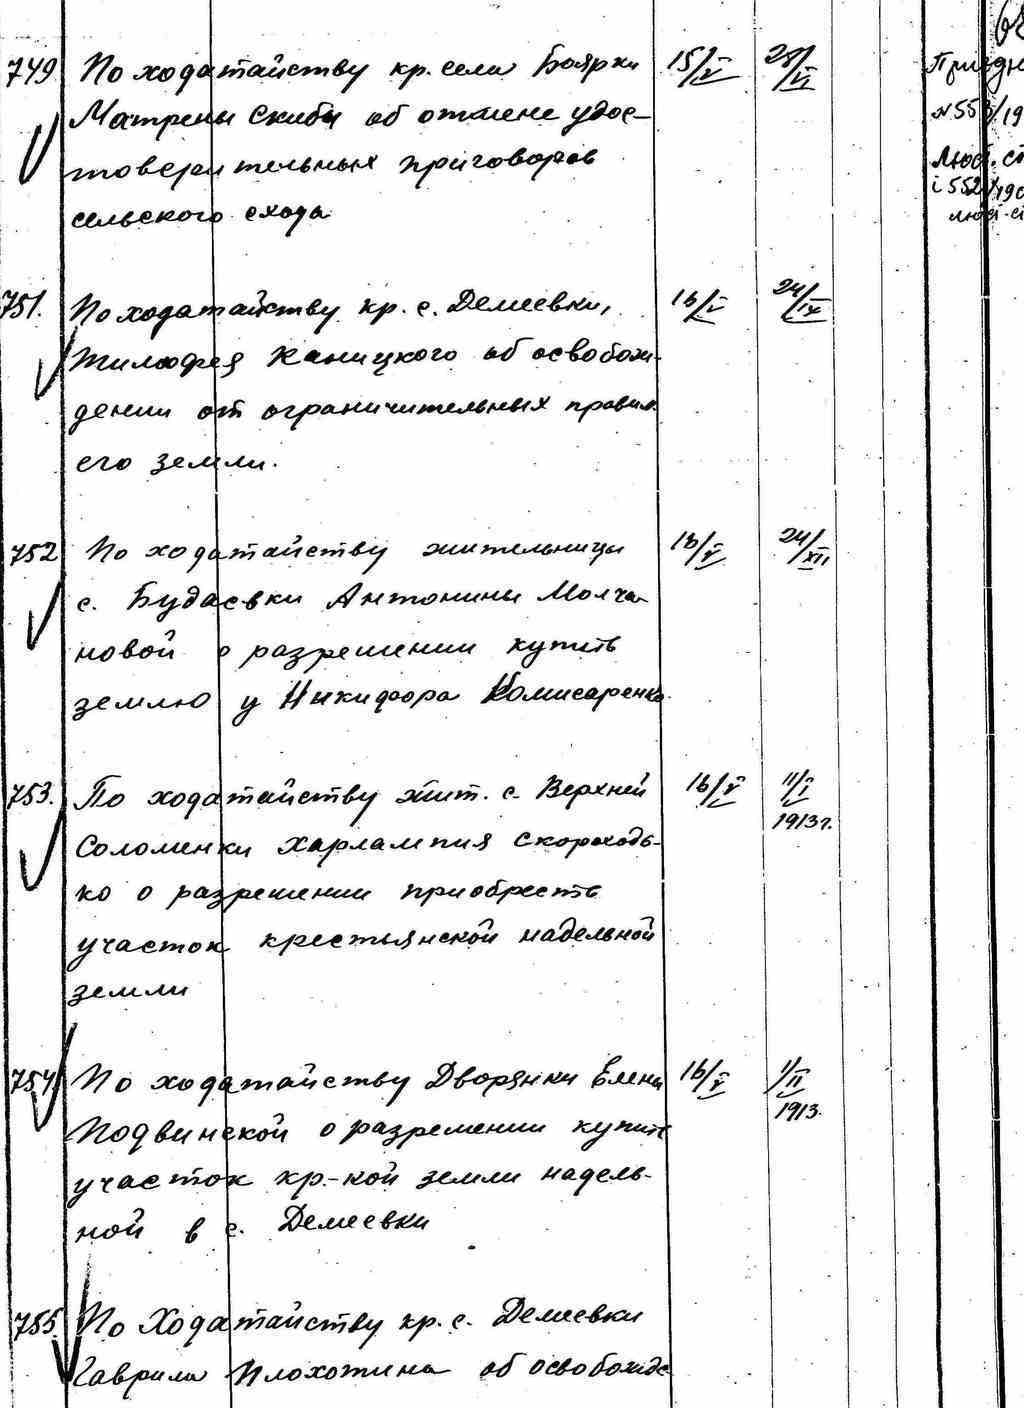 749 По ходатайству кр. села Боярки 15/V 28/VI
Матрены Скибы об отмене удос-
товерительных приговоров
сельского схода
N 553/19
і 552/190
751. По ходатайству кр. с. Демиевки, 16/V 24/IX
Тимофея Каницкого об освобож-
дении от ограничительных правил
его земли.
752 По ходатайству жительницы 16/V 24/XII
с. Будаевки Антонины Молча-
новой о разрешении купить
землю у Никифора Комисаренко
753. По ходатайству жит. с. Верхней 16/V 11/I
1913 г.
Соломенки Харлампия Скороходь-
ко о разрешении приобресть
участок крестьянской надельной
земли
754 По ходатайству Дворянки Елены 16/V 1/II
1913.
Подвинской о разрешении купить
участок кр.-кой земли надель-
ной в с. Демиевки
755. По Ходатайству кр. с. Демиевки
Гаврила Плохотина об освобожде